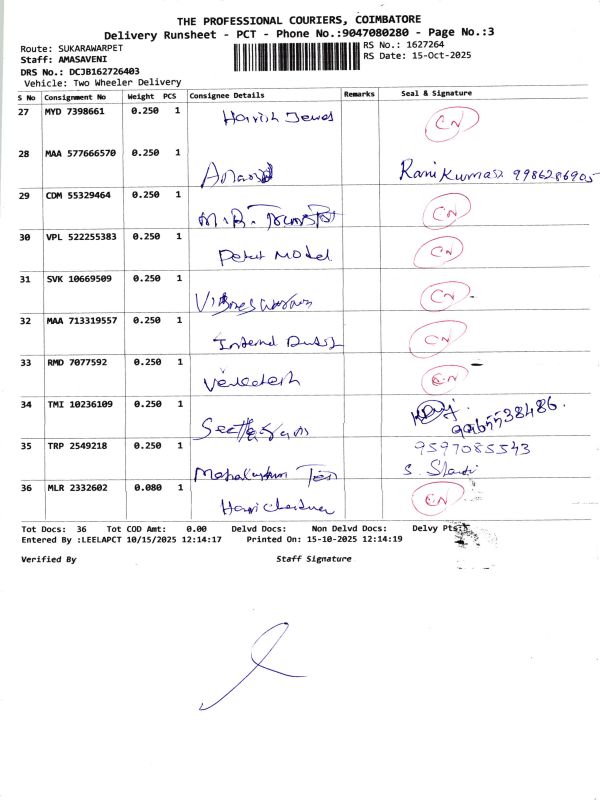 THE PROFESSIONAL COURIERS, COIMBATORE
Delivery Runsheet - PCT - Phone No.:9047080280 - Page No.:3
Route: SUKARAWARPET
RS No.: 1627264
Staff: AMASAVENI
RS Date: 15-Oct-2025
DRS No.: DCJB162726403
Vehicle: Two Wheeler Delivery
S No Consignment No Weight PCS Consignee Details Remarks Seal & Signature
27 MYD 7398661 0.250 1 CN
28 MAA 577666570 0.250 1 Anand
29 CDM 55329464 0.250 1 M.R. CN
30 VPL 522255383 0.250 1 Model CN
31 SVK 10669509 0.250 1 CN
32 MAA 713319557 0.250 1 CN
33 RMD 7077592 0.250 1 CN
34 TMI 10236109 0.250 1
35 TRP 2549218 0.250 1 9597085543
36 MLR 2332602 0.080 1 CN
Tot Docs: 36 Tot COD Amt: 0.00 Delvd Docs: Non Delvd Docs: Delvy Pts:
Entered By :LEELAPCT 10/15/2025 12:14:17 Printed On: 15-10-2025 12:14:19
Verified By Staff Signature